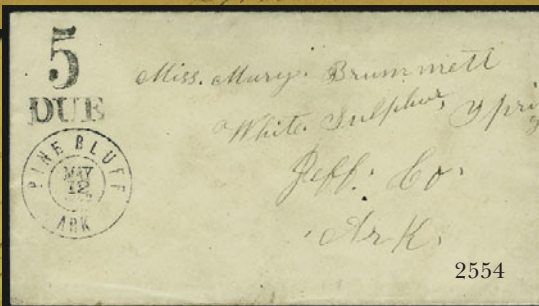 5
DUE
PINE BLUFF
MAY
12
ARK
Miss. Mary. Brummett
White. Sulphur,
Jeff. Co.
Ark.
2554